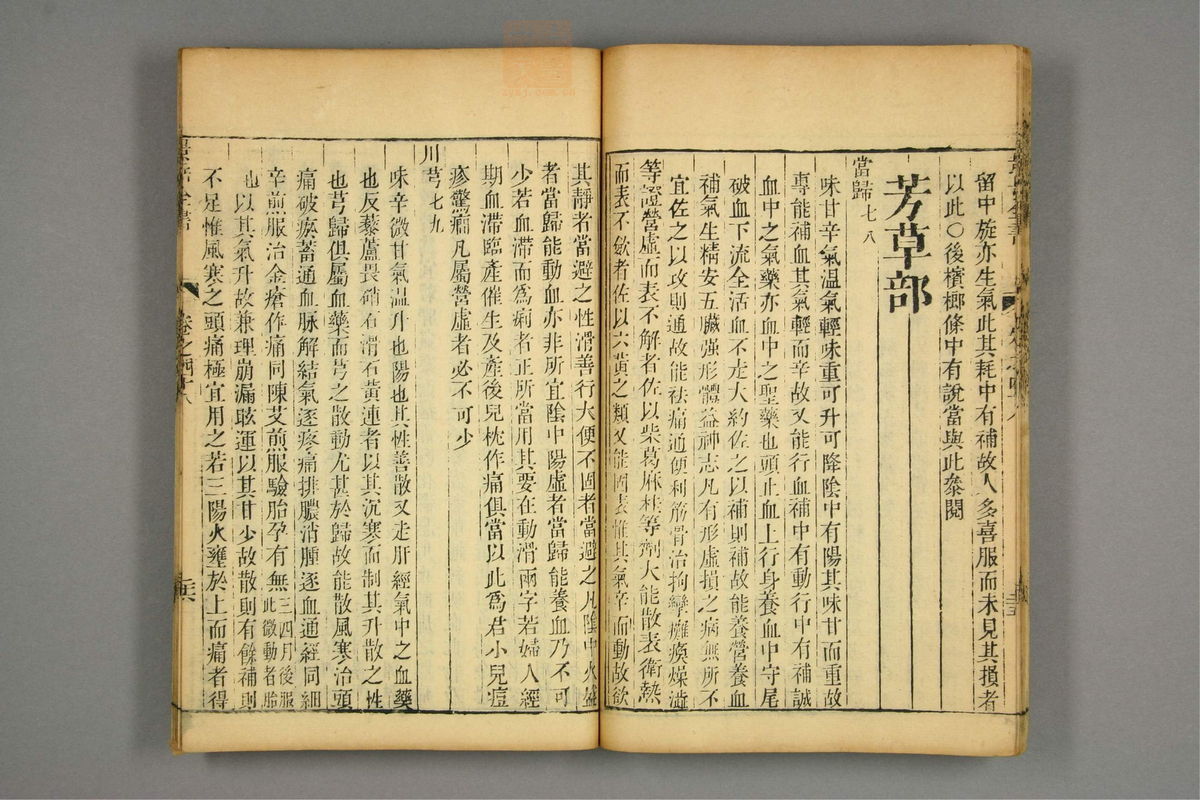 留中旋亦生氣此其耗中有補故人多喜服而未見其損者
以此○後檳榔條中有說當與此叅閱
芳草部
當歸 七八
味甘辛氣温氣輕味重可升可降陰中有陽其味甘而重故
專能補血其氣輕而辛故又能行血補中有動行中有補誠
血中之氣藥亦血中之聖藥也頭止血上行身養血中守尾
破血下流全活血不走大約佐之以補則補故能養營養血
補氣生精安五臟强形體益神志凡有形虛損之病無所不
宜佐之以攻則通故能祛痛通便利筋滑治拘攣癱瘓燥澁
等證營虛而表不解者佐以柴葛麻桂等劑大能散表衛熱
而表不斂者佐以六黃之類又能固表惟其氣辛而動故欲
其靜者當避之性滑善行大便不固者當避之凡陰中火盛
者當歸能動血亦非所宜陰中陽虛者當歸能養血乃不可
少若血滯而爲痢者正所當用其要在動滑兩字若婦人經
期血滯臨產催生及產後兒枕作痛俱當以此爲君小兒痘
疹驚癇凡屬營虛者必不可少
川芎 七九
味辛微甘氣温升也陽也其性善散又走肝經氣中之血藥
也反藜蘆畏硝石滑石黃連者以其沉寒而制其升散之性
也芎歸俱屬血藥而芎之散動尤甚於歸故能散風寒治頭
痛破瘀蓄通血脉解結氣逐疼痛排膿消腫逐血通經同細
辛煎服治金瘡作痛同陳艾煎服驗胎孕有無三四月後服此微動者胎
也以其氣升故兼理崩漏眩運以其甘少故散則有餘補則
不足惟風寒之頭痛極宜用之若三陽火壅於上而痛者得
卷之四十八